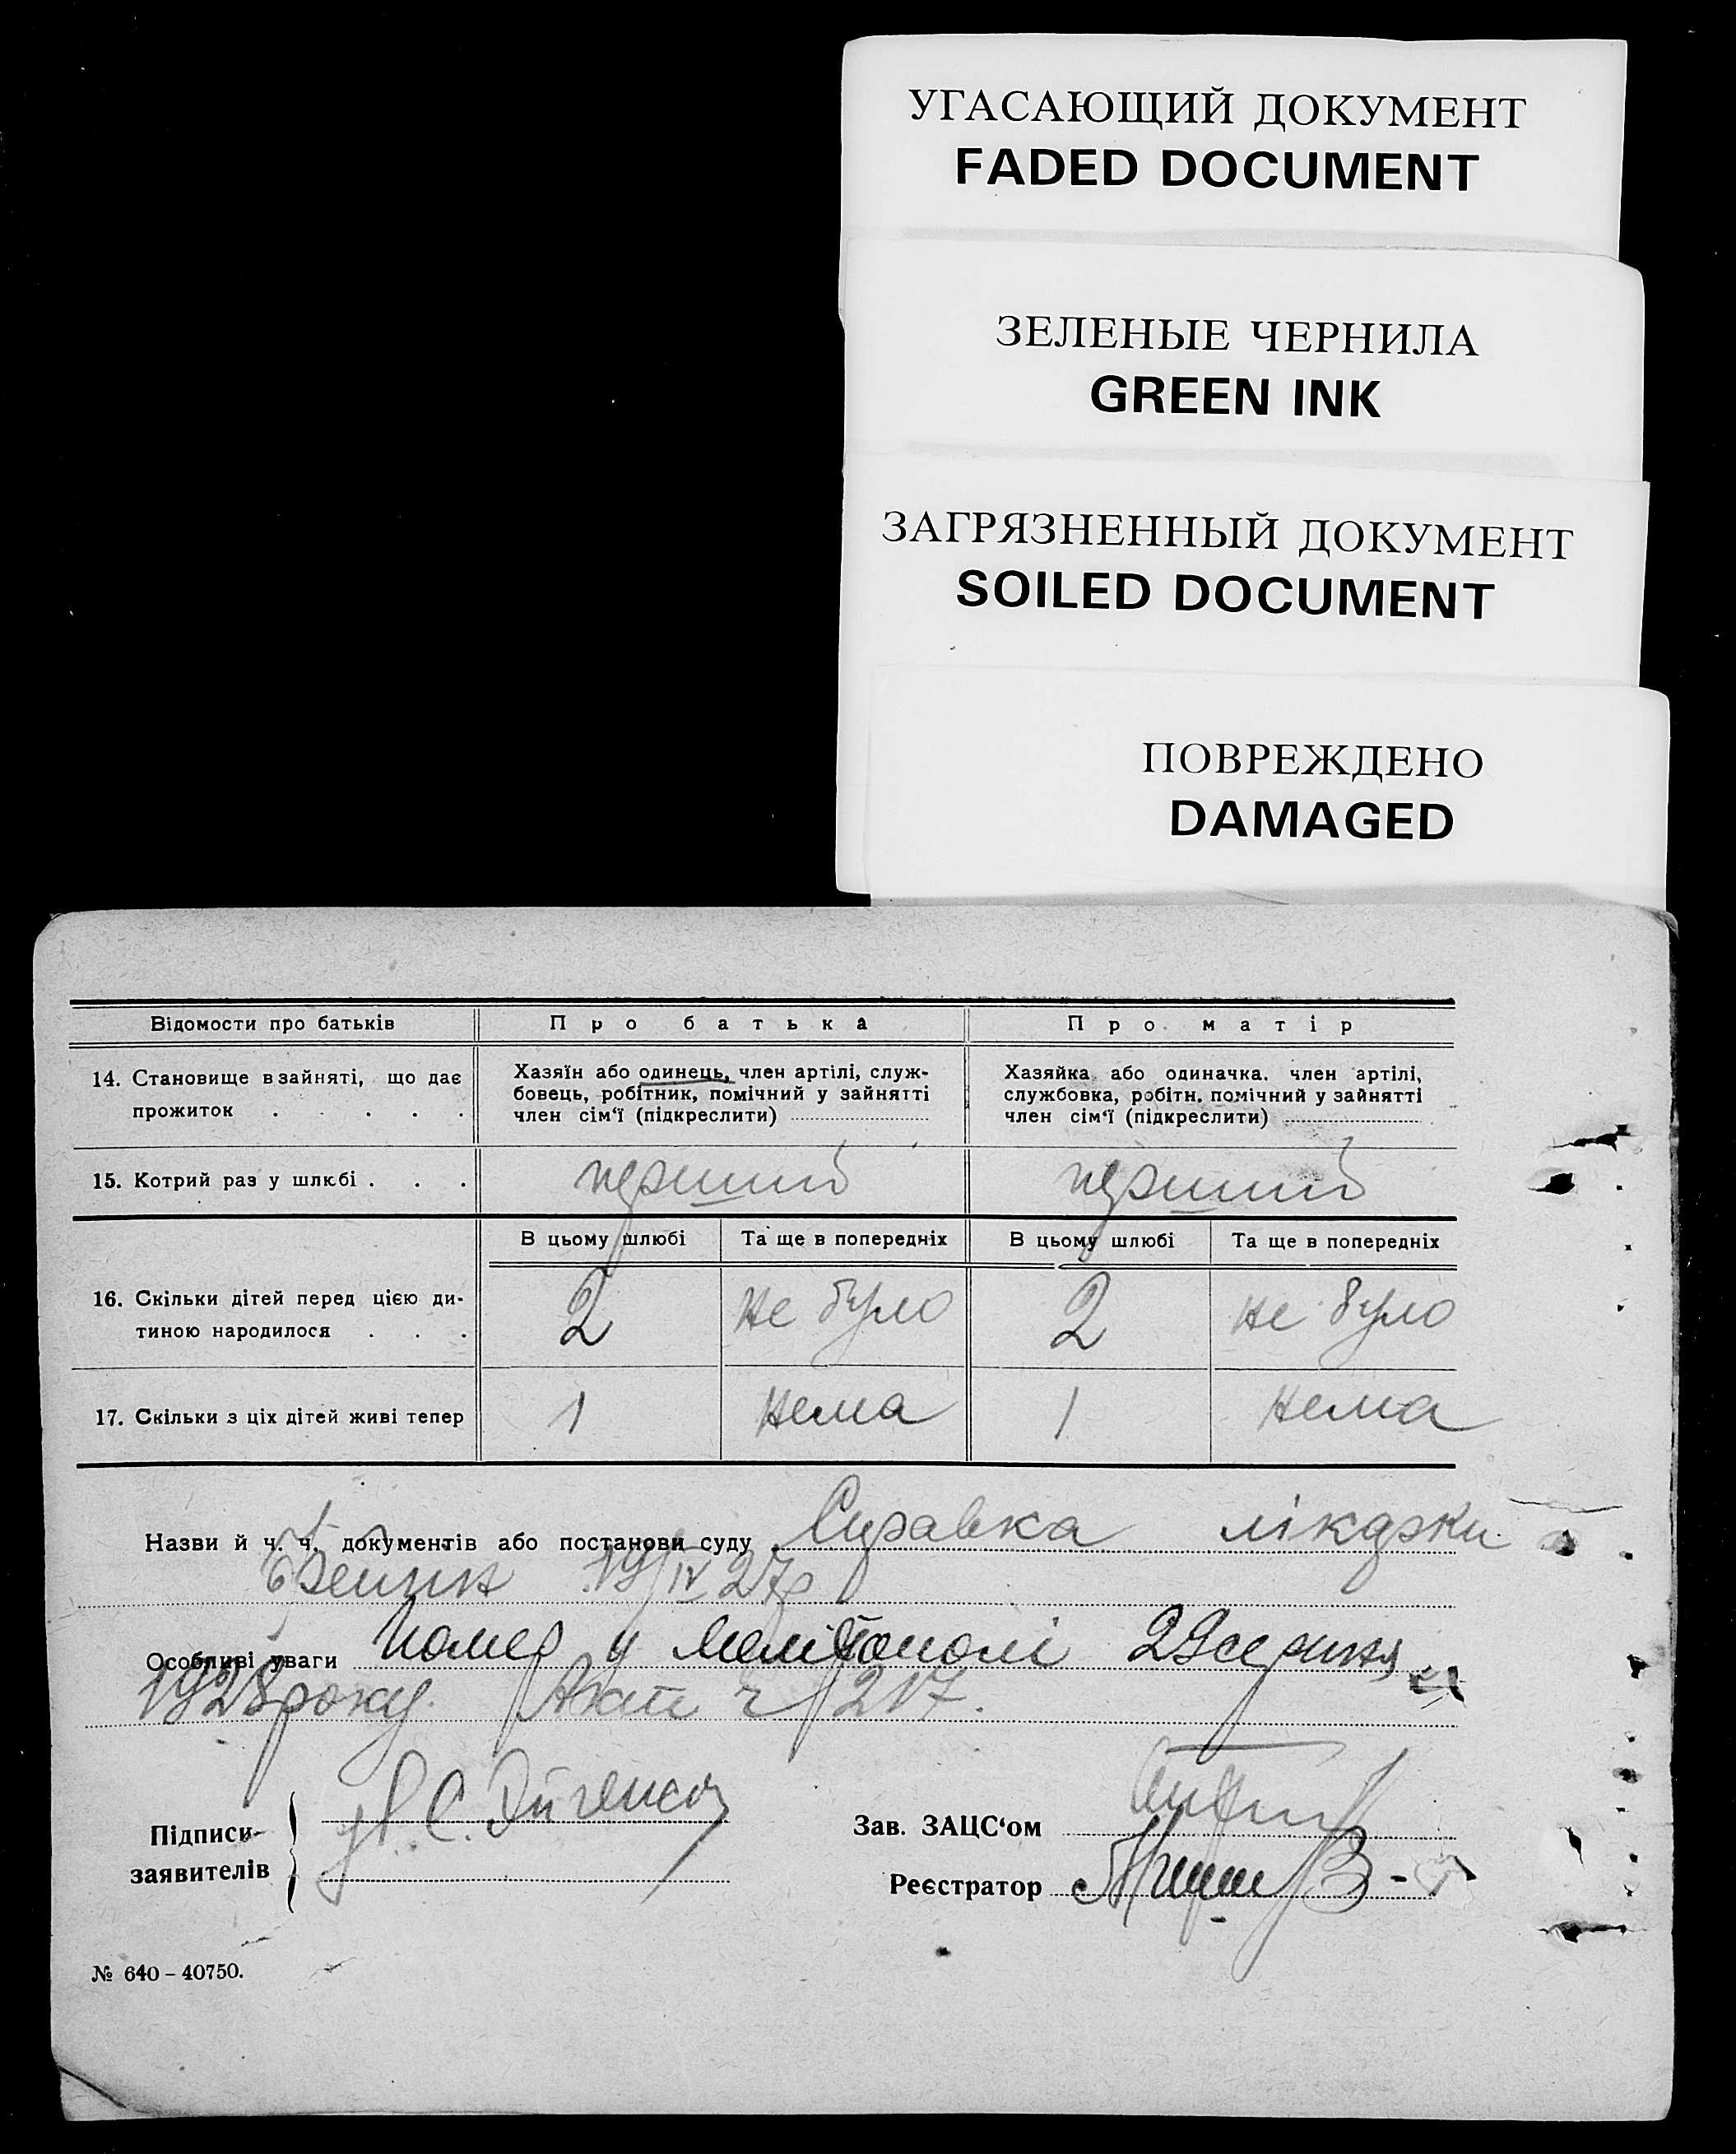 УГАСАЮЩИЙ ДОКУМЕНТ
FADED DOCUMENT
ЗЕЛЕНЫЕ ЧЕРНИЛА
GREEN INK
ЗАГРЯЗНЕННЫЙ ДОКУМЕНТ
SOILED DOCUMENT
ПОВРЕЖДЕНО
DAMAGED
Відомости про батьків Про батька Про матір
14. Становище в зайняті, що дає прожиток . . . . .
Хазяїн або одинець, член артілі, служ-
бовець, робітник, помічний у зайнятті
член сім'ї (підкреслити)
Хазяйка або одиначка, член артілі,
службовка, робітн. помічний у зайнятті
член сім'ї (підкреслити)
15. Котрий раз у шлюбі . . . перший перший
В цьому шлюбі Та ще в попередніх В цьому шлюбі Та ще в попередніх
16. Скільки дітей перед цією ди-
тиною народилося . . . 2 не було 2 не було
17. Скільки з ціх дітей живі тепер 1 нема 1 нема
Назви й ч. ч. документів або постанови суду Справка лікарки
19/IV 27р
Особливі уваги Помер у Мелітополі 29 серпня
1928 року. Акт ч 217.
Підписи
заявителів
Зав. ЗАЦС'ом
Реєстратор
№ 640 – 40750.